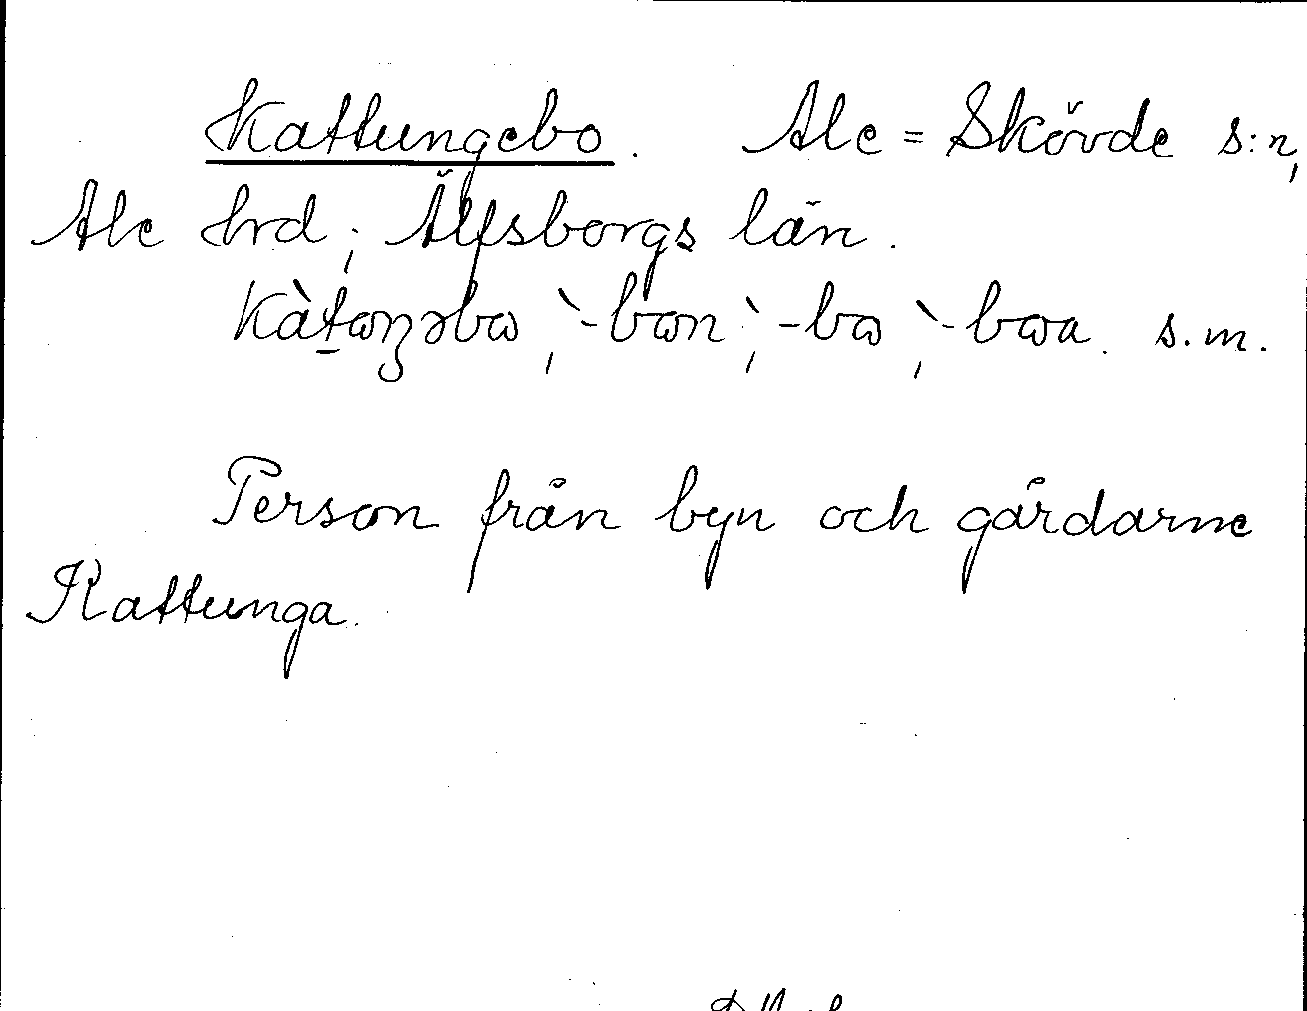 Kattungebo. Ale = Skövde s:n,
Ale hrd, Älfsborgs län.
kàt̠ωŋəbω, `-bωn, `-bω, `-bωa. s.m.
Person från byn och gårdarne
Kattunga.